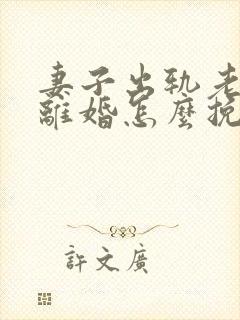 妻子出轨老
離婚怎麼挽
許文廣